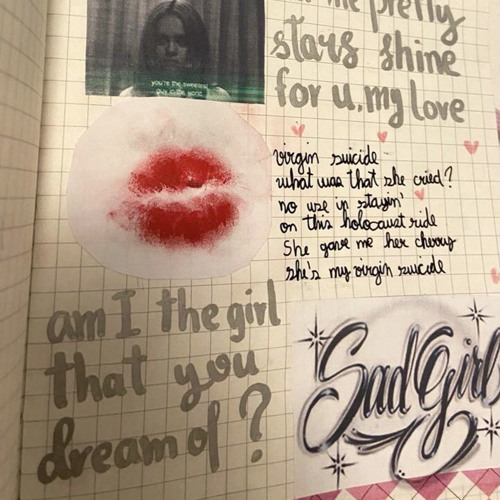 pretty
stars shine
for u, my love
you're the sweetest
virgin suicide
what was that she cried?
no use in stayin'
on this holocaust ride
She gave me her cherry
she's my virgin suicide
am I the girl
that you
dream of?
Sad Girl